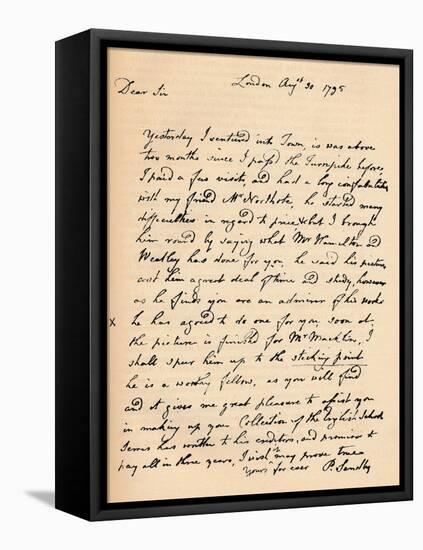 London Augst 30 1795
Dear Sir
Yesterday I ventured into Town, is was above
two months since I past the Turnpike before,
I paid a few visits, and had a long confabulation
with my friend Mr Northcote, he started many
difficulties in regard to price & but I brought
him round by saying what Mr Hamilton and
Weatley has done for you, he said his pictures
cost him a great deal of time and study, however
as he finds you are an admirer of his works
x he has agreed to do one for you, soon as
the picture is finished for Mr Macklin, I
shall spur him up to the sticking point
he is a worthy fellow, as you will find
and it gives me great pleasure to assist you
in making up your Collection of the English School
has written to his creditors, and promises to
pay all in three years, I wish t may prove true
Yours for ever P. Sandby